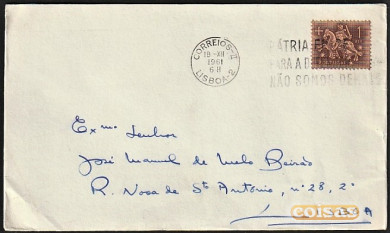 CORREIOS-4
18.-XII
1961
6-8
LISBOA-2
PÁTRIA
PARA A DE
NÃO SOMOS DEMAIS
1
Exmo. Senhor
José Manuel de Melo Beirão
R. Nova de Sto António, nº 28, 2º
coisas